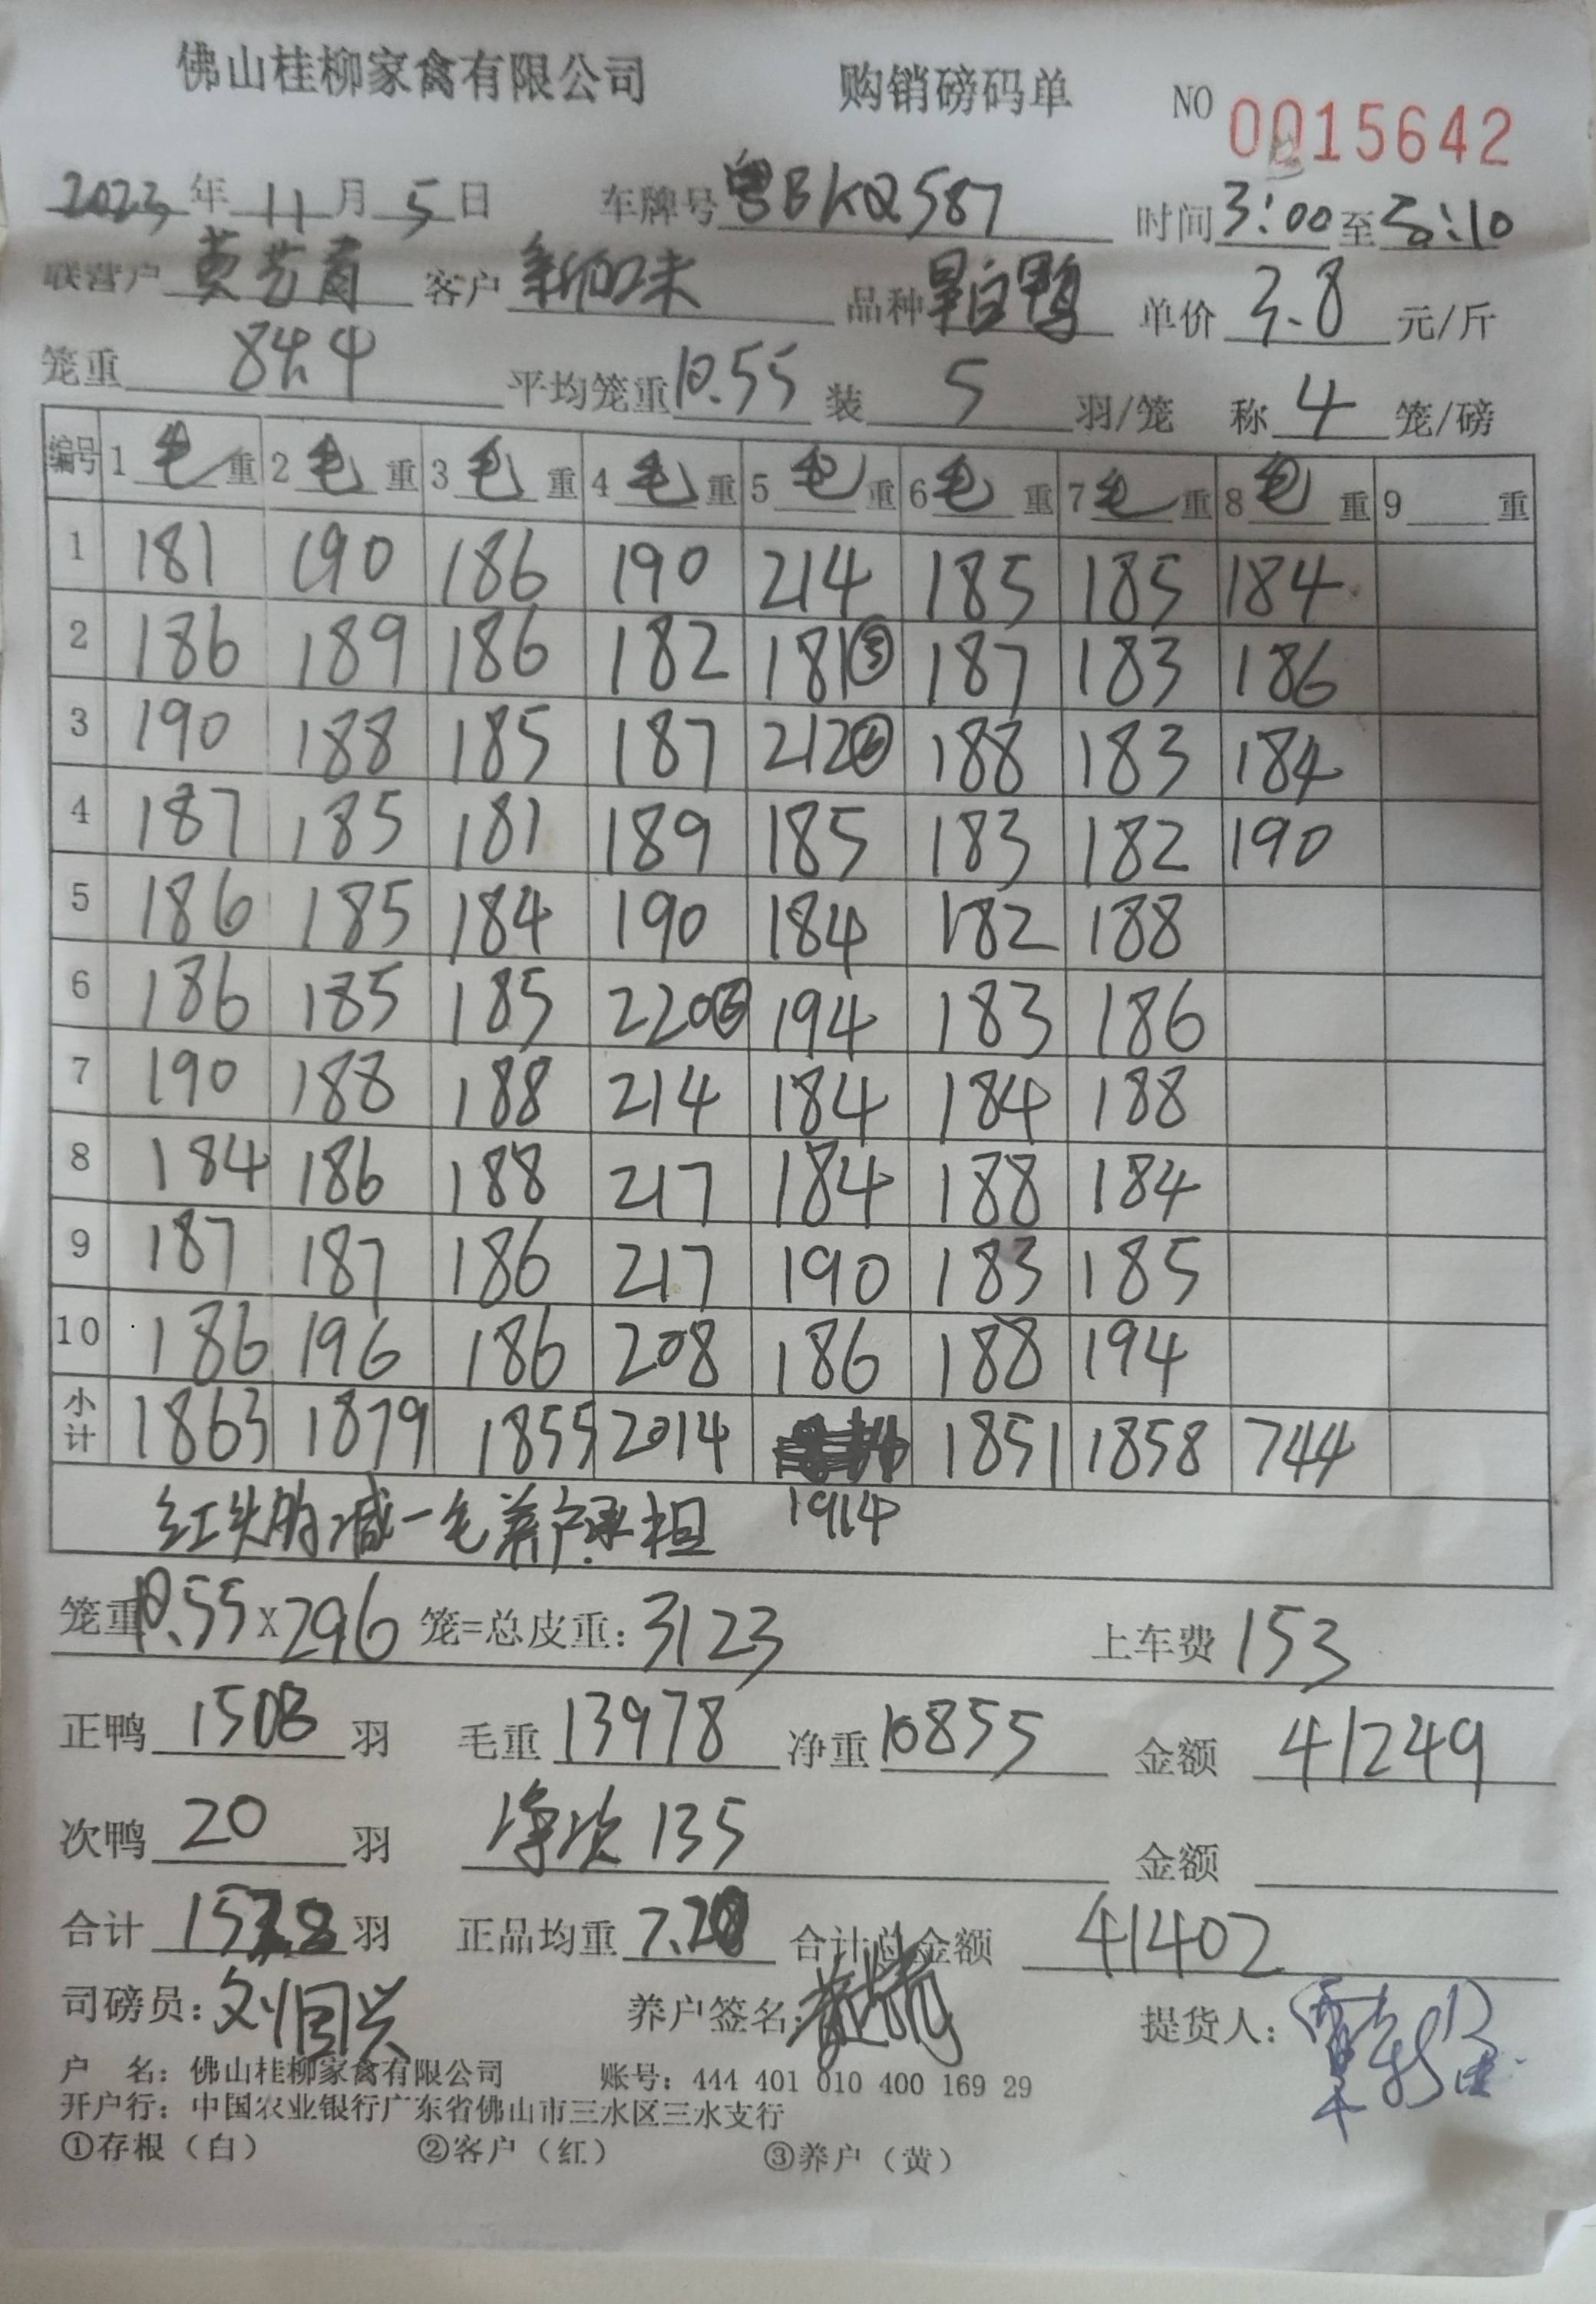 佛山桂柳家禽有限公司 购销磅码单 NO 0015642
2023年11月5日 车牌号粤BKQ587 时间3:00至5:10
联营户 黄艺青 客户 品种 白鸭 单价 3.8 元/斤
笼重 84.4 平均笼重10.55 装 5 羽/笼 称 4 笼/磅
编号 1 毛 重 2 毛 重 3 毛 重 4 毛 重 5 毛 重 6 毛 重 7 毛 重 8 毛 重 9 重
1 181 190 186 190 214 185 185 184
2 186 189 186 182 181③ 187 183 186
3 190 188 185 187 212⑥ 188 183 184
4 187 185 181 189 185 183 182 190
5 186 185 184 190 184 182 188
6 186 185 185 220⑥ 194 183 186
7 190 188 188 214 184 184 188
8 184 186 188 217 184 188 184
9 187 187 186 217 190 183 185
10 186 196 186 208 186 188 194
小计 1863 1879 1855 2014 1914 1851 1858 744
红头的减一毛养户承担
笼重10.55×296 笼=总皮重：3123 上车费 153
正鸭 1508 羽 毛重 13978 净重 10855 金额 41249
次鸭 20 羽 净次 135 金额
合计 1528 羽 正品均重 7.20 合计总金额 41402
司磅员：刘国兴 养户签名： 提货人：
户 名：佛山桂柳家禽有限公司 账号：444 401 010 400 169 29
开户行：中国农业银行广东省佛山市三水区三水支行
①存根（白） ②客户（红） ③养户（黄）